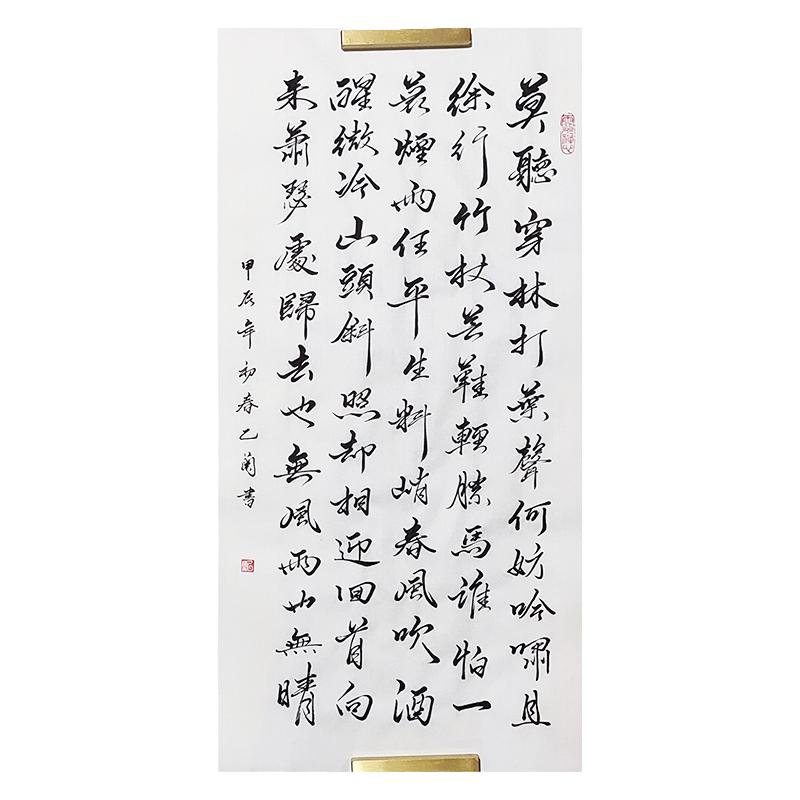 莫聽穿林打葉聲何妨吟嘯且
徐行竹杖芒鞋輕勝馬誰怕一
蓑煙雨任平生料峭春風吹酒
醒微冷山頭斜照却相迎回首向
来蕭瑟處歸去也無風雨也無晴
甲辰年初春乙蘭書